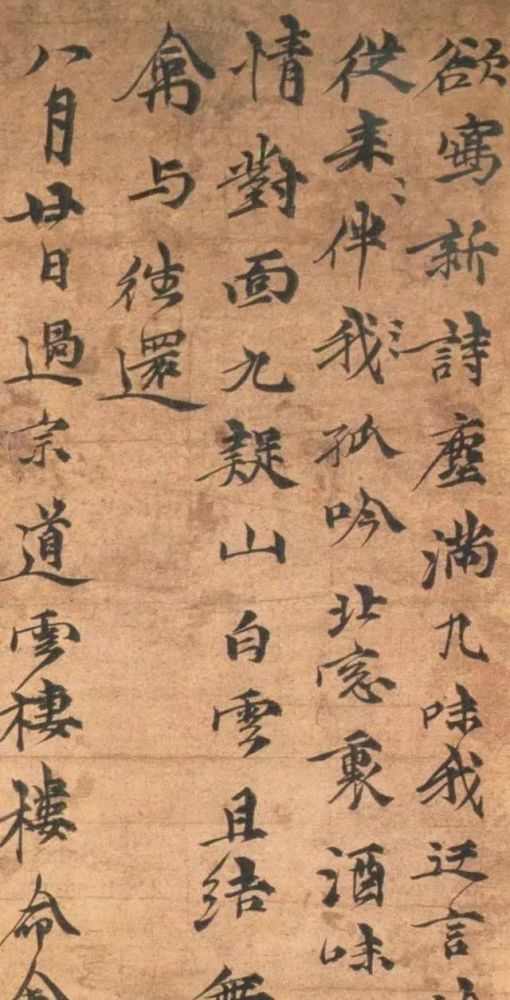 欲寫新詩塵滿几味我迂言
從来伴我孤吟北窓裏酒味
情對面九疑山白雲且結無
禽与往還
八月廿日過宗道雲棲樓命